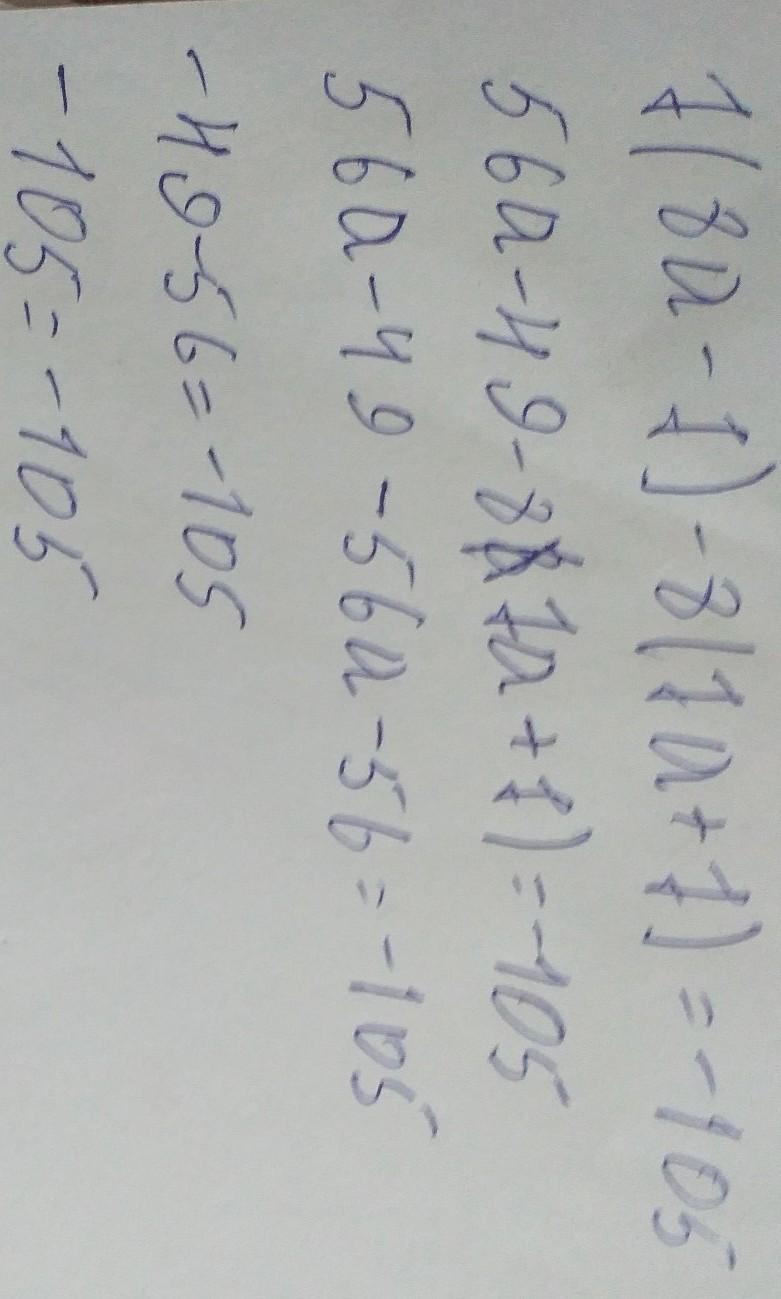 7(8a-7)-8(7a+7)=-105
56a-49-8(7a+7)=-105
56a-49-56a-56=-105
-49-56=-105
-105=-105